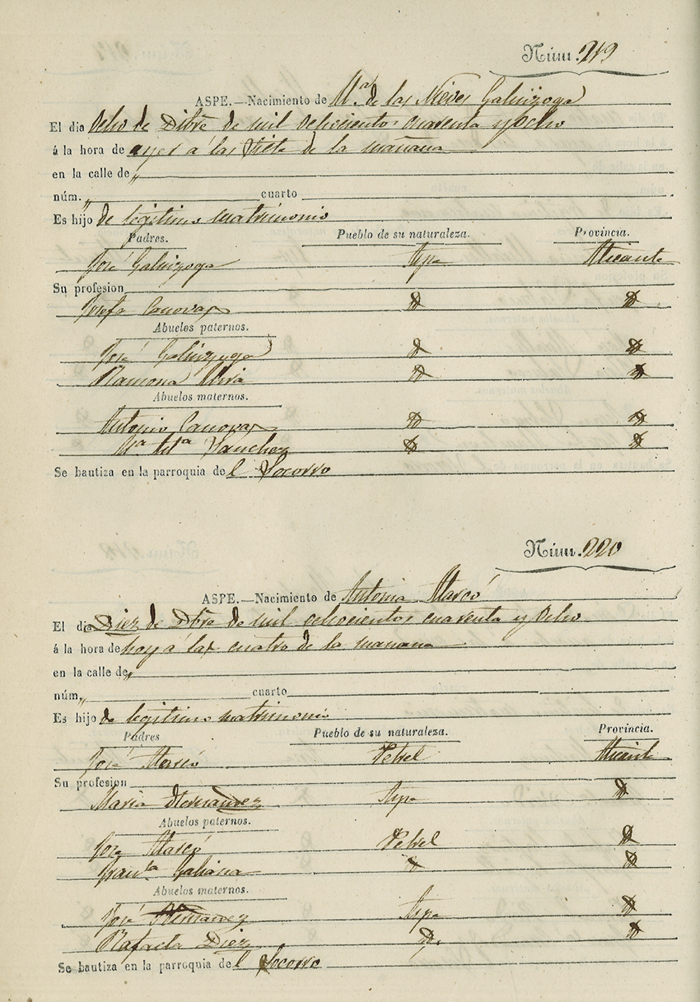 Núm. 219
ASPE.—Nacimiento de Mª de las Nieves Galuizoga
El dia Ocho de Dibre de mil ochocientos cuarenta y Ocho
á la hora de ayer á las siete de la mañana
en la calle de „
núm. „ cuarto
Es hijo de legitimo matrimonio
Padres. Pueblo de su naturaleza. Provincia.
José Galuizoga Aspe Alicante
Su profesion
Josefa Canovas D D
Abuelos paternos.
José Galuizoga D D
Ramona D D
Abuelos maternos.
Antonio Canovas D D
Mª Sanchez D D
Se bautiza en la parroquia del Socorro
Núm. 220
ASPE.—Nacimiento de Antonia
El dia Diez de Dbre de mil ochocientos cuarenta y Ocho
á la hora de hoy á las cuatro de la mañana
en la calle de „
núm. „ cuarto
Es hijo de legitimo matrimonio
Padres Pueblo de su naturaleza. Provincia.
José Petrel Alicante
Su profesion
Maria Hernandez Aspe D
Abuelos paternos.
José Petrel D
Franca Galiana D
Abuelos maternos.
José Aspe D
Rafaela Diez D. D
Se bautiza en la parroquia del Socorro